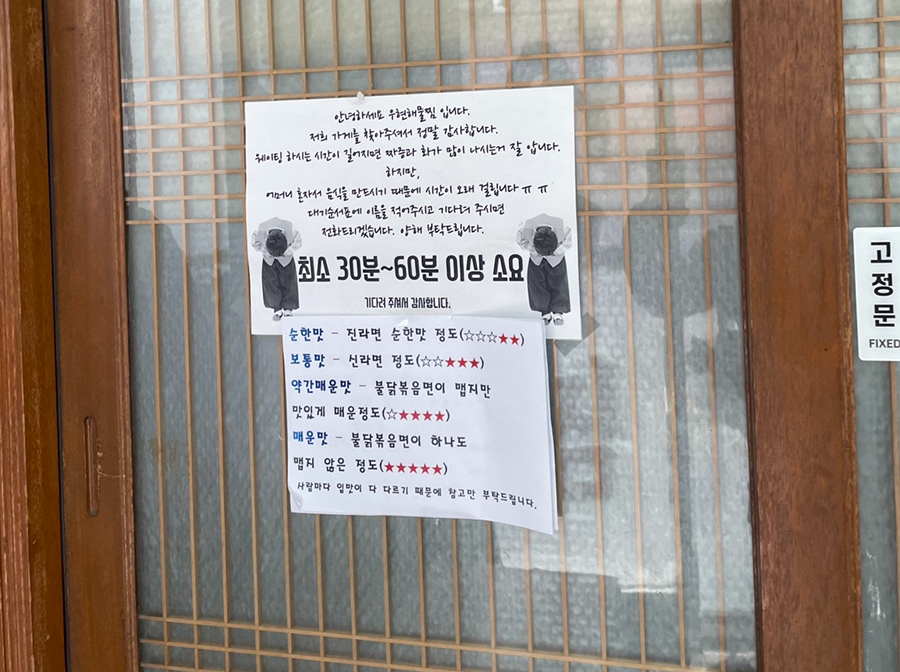 안녕하세요 우현해물찜 입니다.
저희 가게를 찾아주셔서 정말 감사합니다.
웨이팅 하시는 시간이 길어지면 짜증과 화가 많이 나시는거 잘 압니다.
하지만,
어머니 혼자서 음식을 만드시기 때문에 시간이 오래 걸립니다 ㅠ ㅠ
대기순서표에 이름을 적어주시고 기다려 주시면
전화드리겠습니다. 양해 부탁드립니다.
최소 30분~60분 이상 소요
기다려 주셔서 감사합니다.
순한맛 - 진라면 순한맛 정도(☆☆☆★★)
보통맛 - 신라면 정도(☆☆★★★)
약간매운맛 - 불닭볶음면이 맵지만
맛있게 매운정도(☆★★★★)
매운맛 - 불닭볶음면이 하나도
맵지 않은 정도(★★★★★)
사람마다 입맛이 다 다르기 때문에 참고만 부탁드립니다.
고정문
FIXED